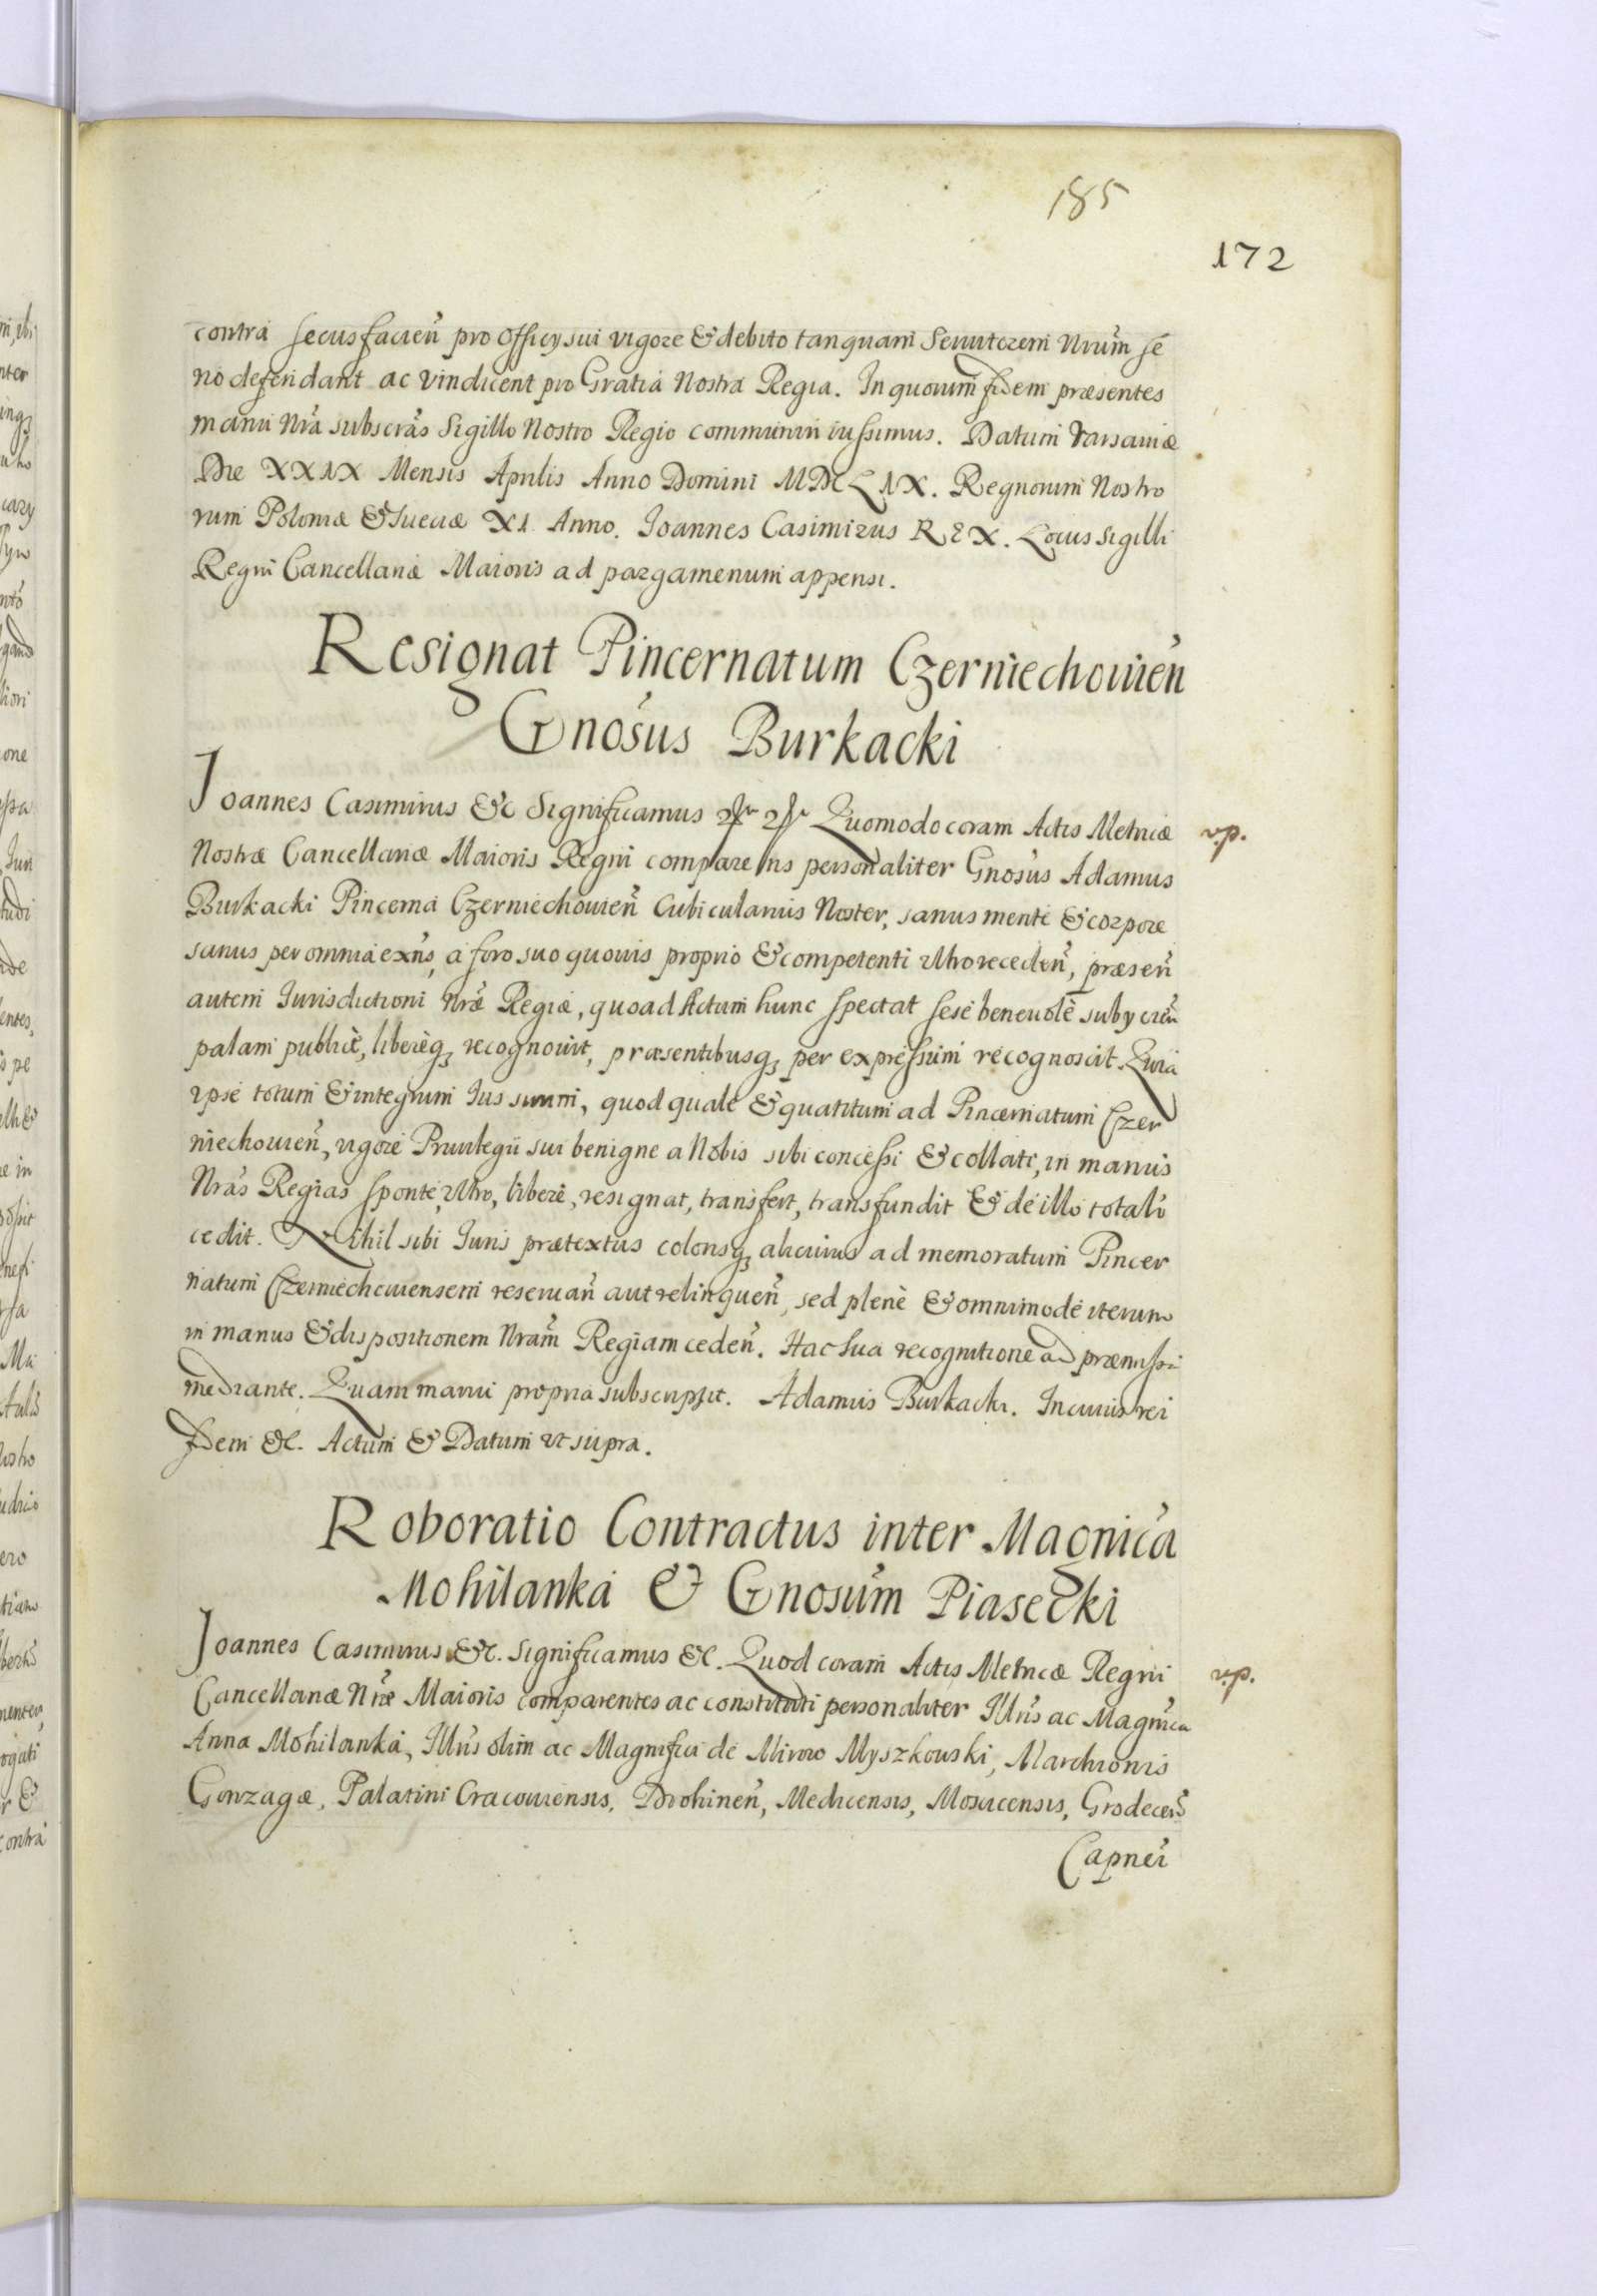 185
172
contra secus facień pro Officy sui vigore & debito tanquam Servitorem Nrum se
rio defendant ac vindicent pro Gratia Nostra Regia. In quorum fidem præsentes
manu Nrã subscrãs Sigillo Nostro Regio communiri iussimus. Datum Varsaviæ
Die XXIX Mensis Aprilis Anno Domini MDCLIX. Regnorum Nostro
rum Poloniæ & Sueciæ XI Anno. Joannes Casimirus REX. Locus Sigilli
Regni Cancellariæ Maioris ad pargamenum appensi.
Resignat Pincernatum Czerniechovień
Gnosus Burkacki
Joannes Casimirus &c Significamus &c &c Quomodo coram Actis Metricæ
v.p.
Nostræ Cancellariæ Maioris Regni comparens personaliter Gnosus Adamus
Burkacki Pincerna Czerniechovień Cubicularius Noster, sanus mente & corpore
sanus per omnia exńs, a foro suo quovis proprio & competenti ultro recedeń, præseń
autem Jurisdictioni Nræ Regiæ, quoad Actum hunc spectat sese benevolè subycień
palam publicè, liberèq; recognovit, præsentibusq; per expressum recognoscit. Quia
ipse totum & integrum Ius suum, quod quale & quantum ad Pincernatum Czer
niechovień, vigore Privilegii sui benigne a Nobis sibi concessi & collati, in manus
Nrãs Regias sponte, ultro, liberè, resignat, transfert, transfundit & de illo totalr
cedit. Nihil sibi Juris prætextus colorisq; alicuius ad memoratum Pincer
natum Czerniechoviensem reservań aut relinqueń, sed plenè & omnimodè iterum
in manus & dispositionem Nram Regiam cedeń. Hac sua recognitione ad præmissa
mediante. Quam manu propria subscripsit. Adamus Burkacki. In cuius rei
fidem &c. Actum & Datum ut supra.
Roboratio Contractus inter Magnica
Mohilanka & Gnosum Piasecki
Joannes Casimirus &c. Significamus &c. Quod coram Actis Metricæ Regni
v.p.
Cancellariæ Nræ Maioris comparentes ac constituti personaliter Illris ac Magnica
Anna Mohilanka, Illris olim ac Magnifici de Mirow Myszkowski, Marchionis
Gonzagæ, Palatini Cracoviensis, Drohineń, Medicensis, Moscicensis, Grodeceń
Capnei